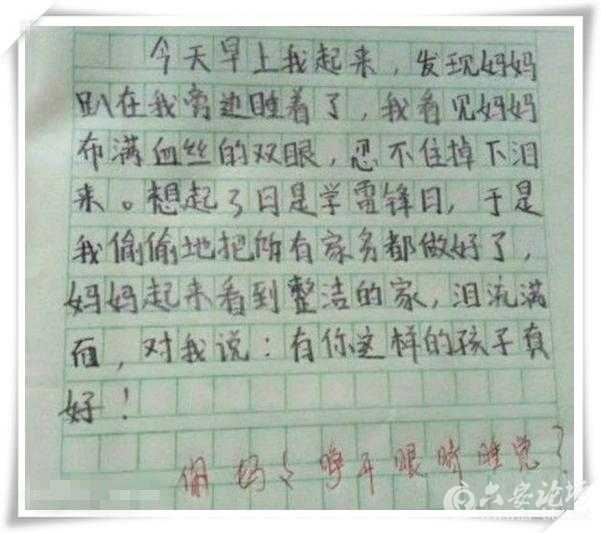 今天早上我起来，发现妈妈
趴在我旁边睡着了，我看见妈妈
布满血丝的双眼，忍不住掉下泪
来。想起了日是学雷锋日，于是
我偷偷地把所有家务都做好了，
妈妈起来看到整洁的家，泪流满
面，对我说：有你这样的孩子真
好！
你妈々睁开眼睛睡觉？
六安论坛